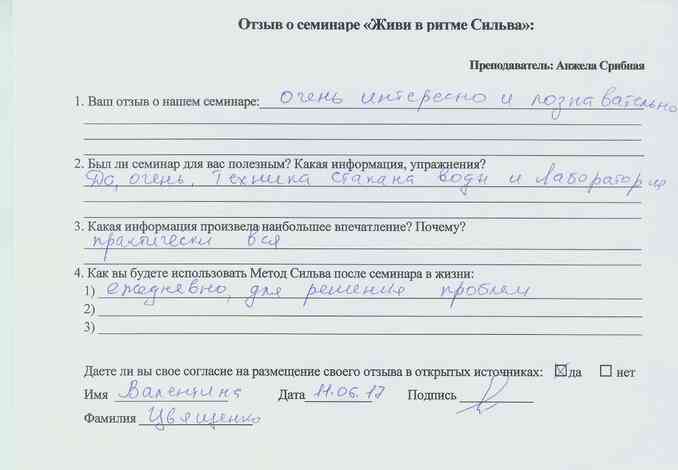 Отзыв о семинаре «Живи в ритме Сильва»:
Преподаватель: Анжела Срибная
1. Ваш отзыв о нашем семинаре: очень интересно и познавательно
2. Был ли семинар для вас полезным? Какая информация, упражнения?
Да, очень, Техника стакана воды и Лаборатория
3. Какая информация произвела наибольшее впечатление? Почему?
практически вся
4. Как вы будете использовать Метод Сильва после семинара в жизни:
1) ежедневно, для решения проблем
2)
3)
Даете ли вы свое согласие на размещение своего отзыва в открытых источниках: да нет
Имя Валентина Дата 11.06.17 Подпись
Фамилия Цвященко